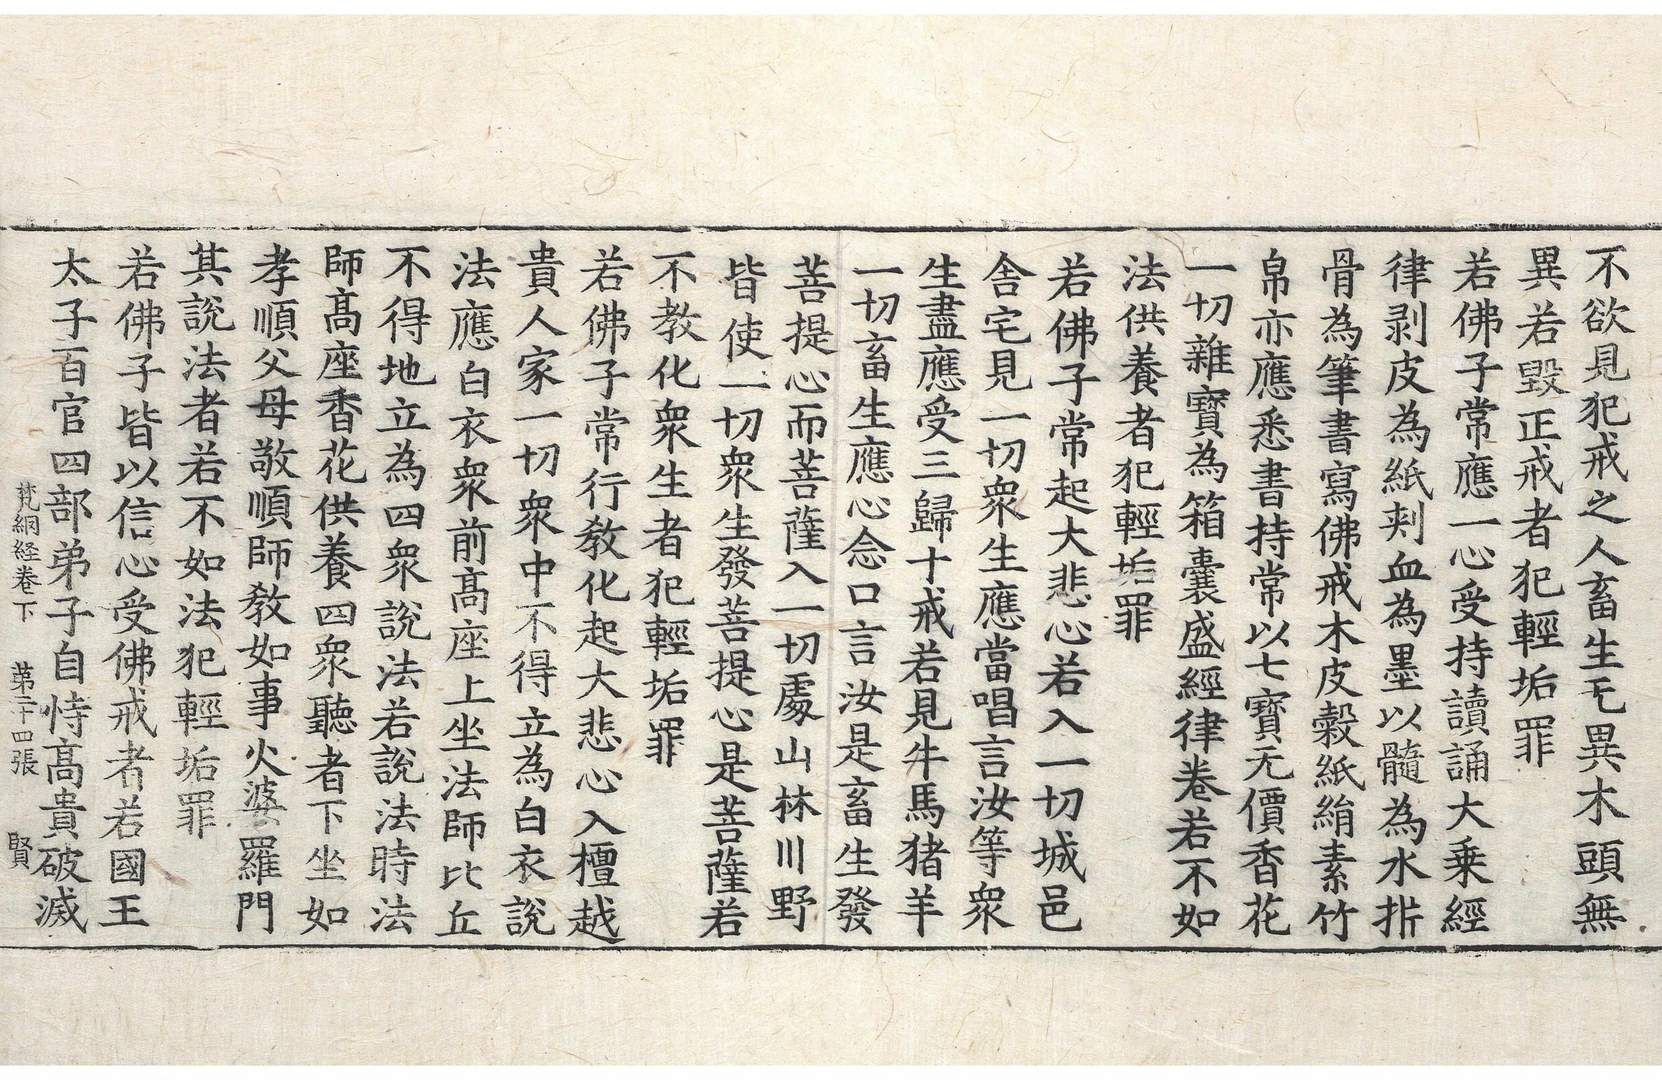 不欲見犯戒之人畜生无異木頭無
異若毀正戒者犯輕垢罪
若佛子常應一心受持讀誦大乗經
律剥皮為紙刾血為墨以髓為水㭊
骨為筆書寫佛戒木皮糓紙絹素竹
帛亦應悉書持常以七寶无價香花
一切雜寶為箱囊盛經律卷若不如
法供養者犯輕垢罪
若佛子常起大悲心若入一切城邑
舎宅見一切衆生應當唱言汝等衆
生盡應受三歸十戒若見牛馬猪羊
一切畜生應心念口言汝是畜生發
菩提心而菩薩入一切處山林川野
皆使一切衆生發菩提心是菩薩若
不教化衆生者犯輕垢罪
若佛子常行教化起大悲心入檀越
貴人家一切衆中不得立為白衣說
法應白衣衆前髙座上坐法師比丘
不得地立為四衆說法若說法時法
師髙座香花供養四衆聽者下坐如
孝順父母敬順師教如事火婆羅門
其說法者若不如法犯輕垢罪
若佛子皆以信心受佛戒者若國王
太子百官四部弟子自恃髙貴破滅
梵網経卷下 第二十四張 賢